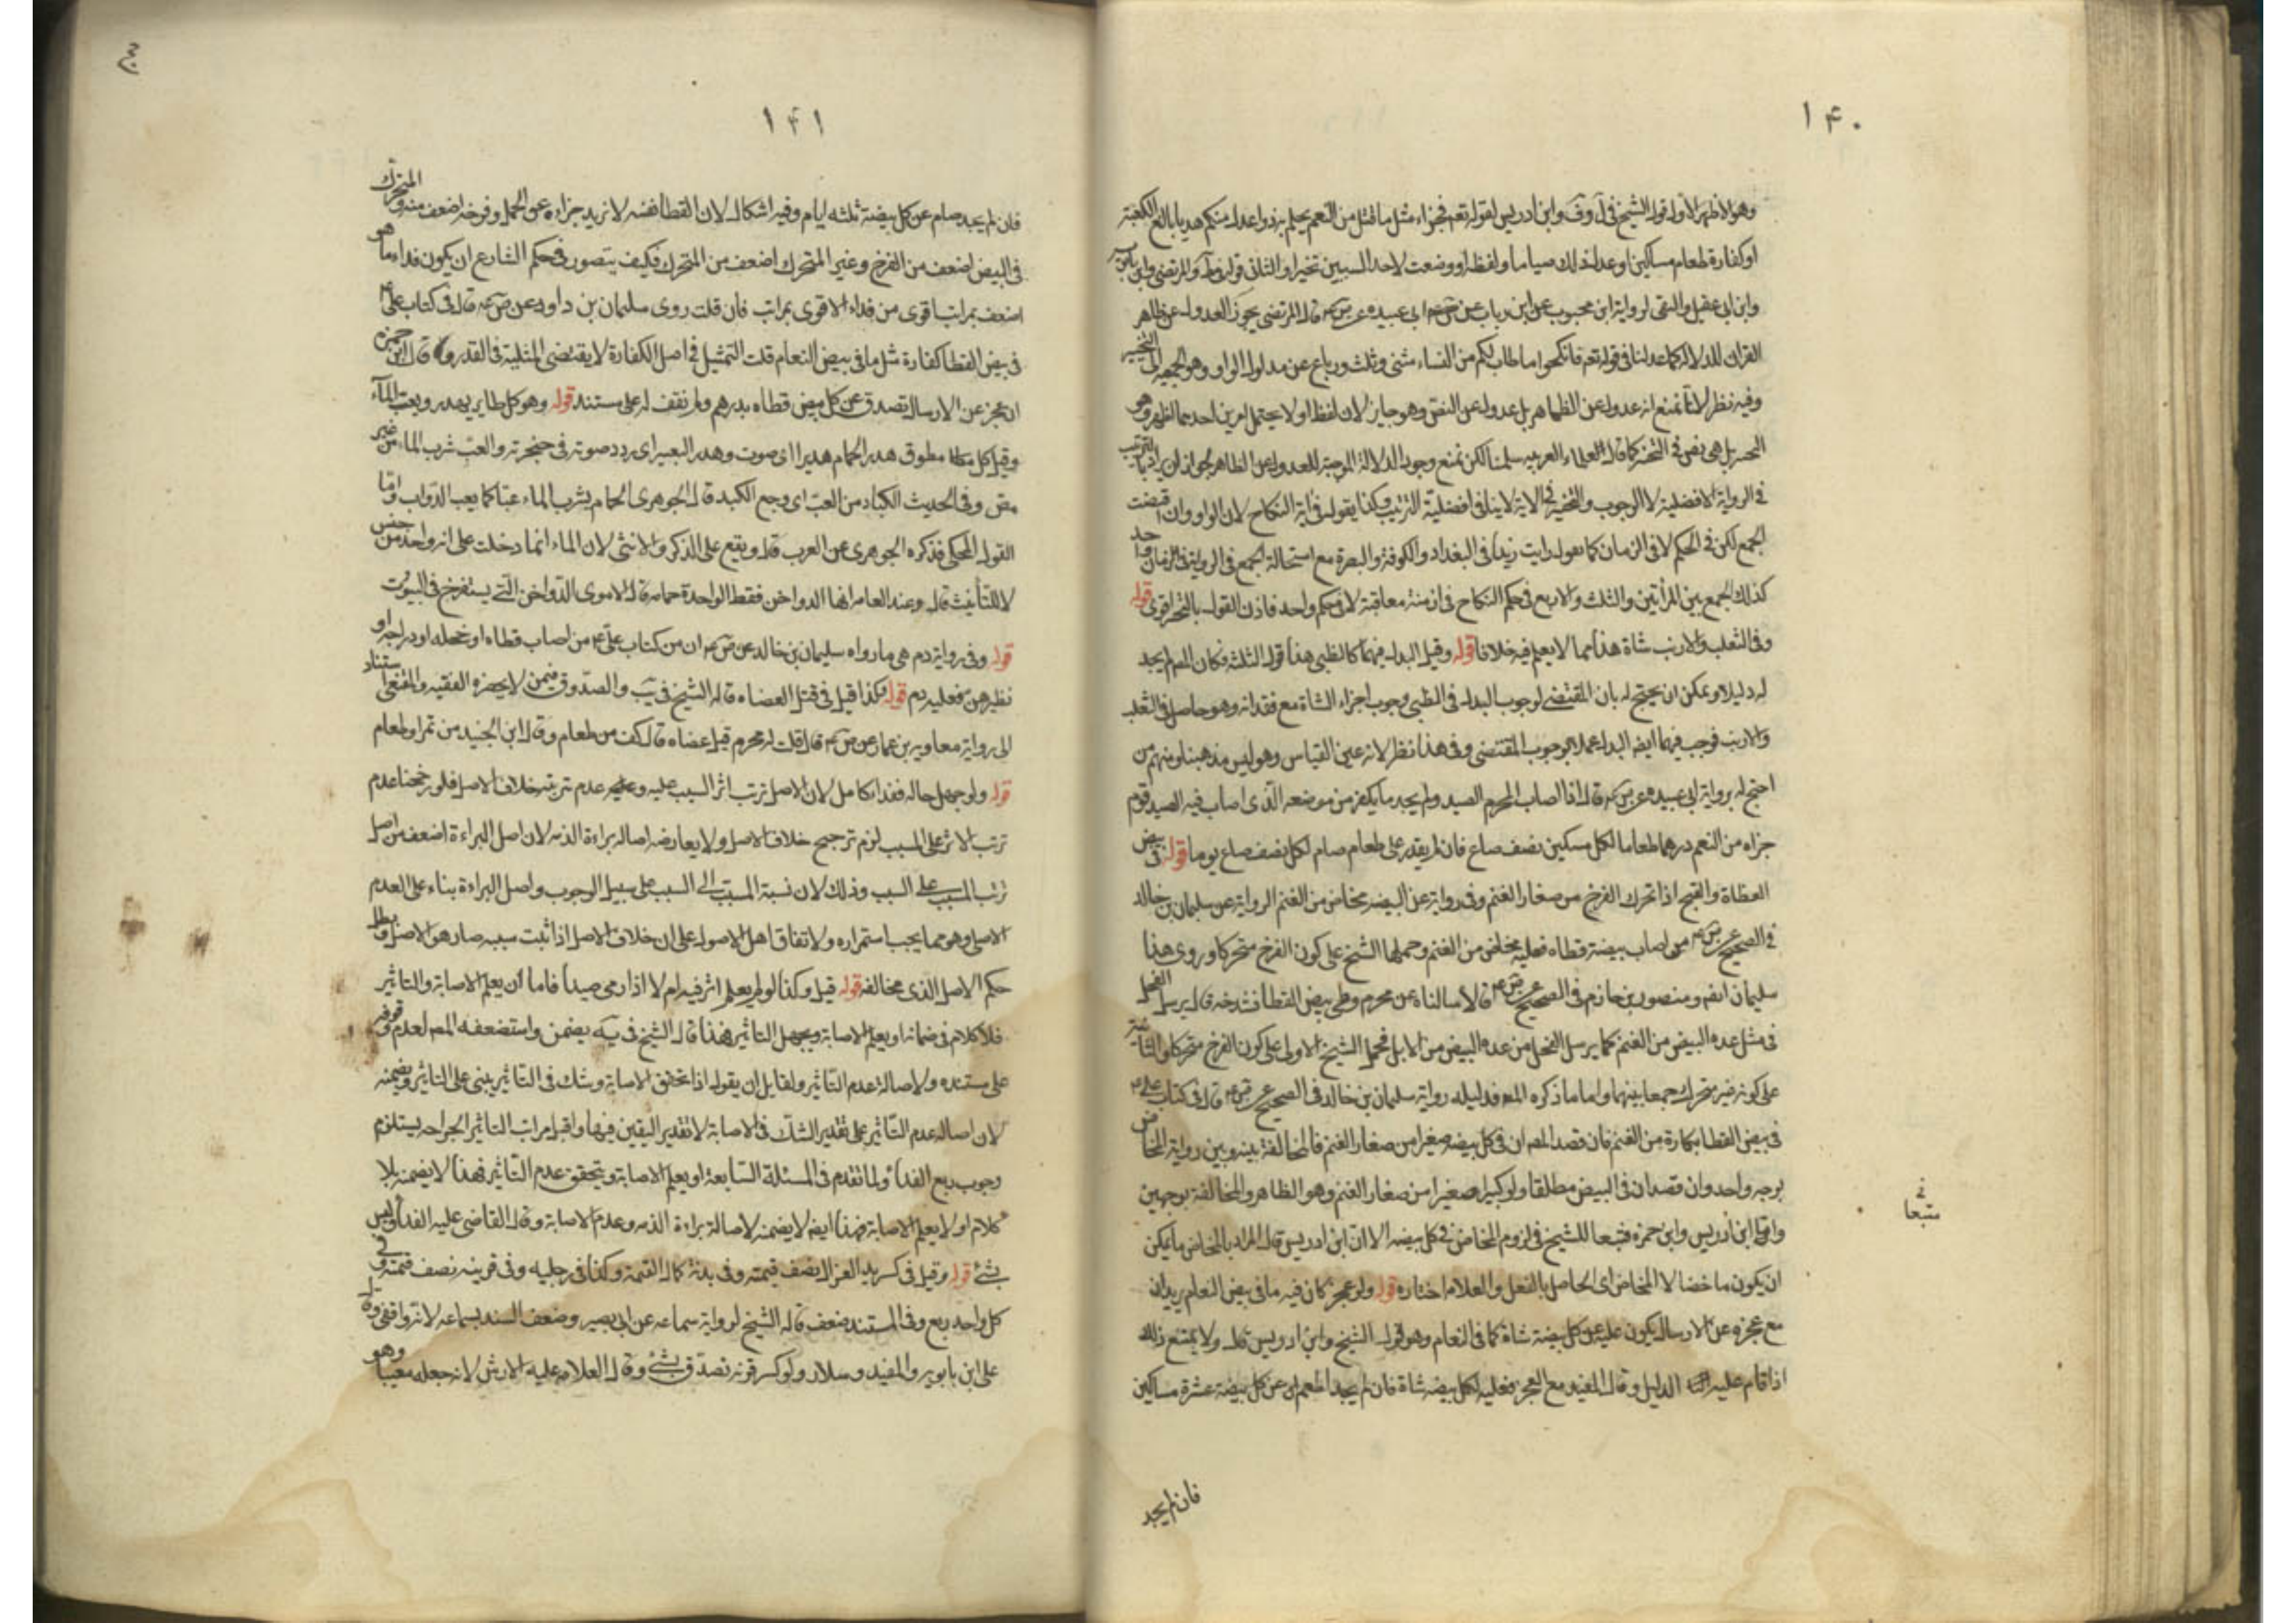 ١٤٠
وهو الاظهر الاول قول الشيخ في ل وف وابن ادريس لقوله تعم فجزاء مثل ما قتل من النعم يحكم به ذوا عدل منكم هديا بالغ الكعبة
او كفارة طعام مساكين او عدل ذلك صياما ولفظ او وضعت لاحد السببين تخيرا والثاني قول والمرتضى وابن بابويه
وابن ابي عقيل والتقى لرواية ابن محبوب عن ابن رباب عن ابي عبيده عن ص ع قال المرتضى يجوز العدول عن ظاهر
القران للدلالة كما عدلنا في قوله تعم فانكحوا ما طاب لكم من النساء مثنى وثلث ورباع عن مدلول الواو وهو الجمع الى التخيير
وفيه نظر لانا نمنع انه عدول عن الظاهر بل عدول عن النص وهو جايز لان لفظ او لا يحتمل امرين احدهما اظهر وهو
بل هي نص في التخير كما قال العلماء العربيه سلمنا لكن نمنع وجود الدلالة الموجبة للعدول عن الظاهر لجواز ان يراد بالترتيب
في الرواية الافضلية لا الوجوب والتخير في الاية لا ينافي افضلية الترتيب وكذا يقول في اية النكاح لان الواو وان اقتضت
الجمع لكن في الحكم لا في الزمان كما تقول رايت زيدا في البغداد والكوفة والبصرة مع استحالة الجمع في الرواية في الزمان واحد
كذلك الجمع بين المرأتين والثلث والاربع في حكم النكاح في ازمنة معاقبة لا في حكم واحد فاذن القول بالتخير اقوى قوله
وفي الثعلب والارنب شاة هذا مما لا يعلم فيه خلافا قوله وقيل البدل فيهما كالظبي هذا قول الثلثة وكان المص لم يجد
له دليلا ويمكن ان يحتج له بان المقتضى لوجوب البدل في الظبي وجوب اجزاء الشاة مع فقدانه وهو حاصل في الثعلب
والارنب فوجب فيهما ايضا البدل عملا بوجوب المقتضى وفي هذا نظر لانه عين القياس وهو ليس مذهبنا ومنهم من
احتج له برواية ابي عبيده عن ص ع قال اذا اصاب المحرم الصيد ولم يجد ما يكفر من موضعه الذى اصاب فيه الصيد قوم
جزاه من النعم درهما طعاما لكل مسكين نصف صاع فان لم يقدر على طعام صام لكل نصف صاع يوما قوله في بيض
القطاة والقبج اذا تحرك الفرخ من صغار الغنم وفي رواية عن البيضه مخاض من الغنم الرواية عن سليمان بن خالد
في الصحيح عن ص ع من اصاب بيضة قطاه فعليه مخاض من الغنم وحملها الشيخ على كون الفرخ متحركا وروى هذا
سليمان ايضا ومنصور بن حازم في الصحيح عن ص ع قالا سالناه عن محرم وطي بيض القطا فشدخه قال يرسل الفحل
في مثل عدة البيض من الغنم كما يرسل الفحل من عدة البيض من الابل فحمل الشيخ الاولى على كون الفرخ متحركا والثانية
على كونه غير متحرك جمعا بينهما واما ما ذكره المص فدليله رواية سليمان بن خالد في الصحيح عن ص ع قال في كتاب على ع
في بيض القطا بكارة من الغنم فان قصد المص ان في كل بيضه صغيرا من صغار الغنم فالمخالفة بينه وبين رواية المخاض
بوجه واحد وان قصد ان في البيض مطلقا ولو كبيرا صغيرا من صغار الغنم وهو الظاهر والمخالفة بوجهين
واما ابن ادريس وابن حمزه فتبعا للشيخ في لزوم المخاض في كل بيضه الا ان ابن ادريس قال المراد بالمخاض ما يمكن
ان يكون ماخضا لا المخاض اى الحاصل بالفعل والعلامه اختاره قوله ولو عجز كان فيه ما في بيض النعام يريد ان
مع عجزه عن الارسال يكون عليه عن كل بيضة شاة كما في النعام وهو قول الشيخ وابن ادريس قال ولا يمتنع ذلك
اذا قام عليه الدليل وقال المفيد مع العجز فعليه لكل بيضه شاة فان لم يجد اطعم ان عن كل بيضة عشرة مساكين
فان لم يجد
متبعا
١٤١
فان لم يجد صام عن كل بيضة ثلثه ايام وفيه اشكال لان القطا نفسه لا نريد جزاءه عن الحمل وفرخه اضعف منه والمتحرك
في البيض اضعف من الفرخ وغير المتحرك اضعف من المتحرك فكيف يتصور في حكم الشارع ان يكون فداء ما هو
اضعف بمراتب اقوى من فداء الاقوى بمراتب فان قلت روى سليمان بن داود عن ص ع قال في كتاب على ع
في بيض القطا كفارة مثل ما في بيض النعام قلت التمثيل في اصل الكفارة لا يقتضى المثلية في القدر وقال ابن حمزه
ان عجز عن الارسال تصدق عن كل بيض قطاه بدرهم ولم نقف له على مستند قوله وهو كل طاير يهدر ويعب المآء
وقيل كل مطوق هدر الحمام هديرا اى صوت وهدر البعير اى ردد صوته في حنجرته والعب شرب الماء من غير
مص وفي الحديث الكباد من العب اى وجع الكبد قال الجوهرى الحمام يشرب الماء عبا كما يعب الدواب واما
القول المحكي فذكره الجوهرى عن العرب قال ويقع على الذكر والانثى لان الهاء انما دخلت على انه واحد من جنس
لا للتأنيث قال وعند العامه انها الدواجن فقط الواحدة حمامه قال الاموى الدواجن التى يستفرخ في البيوت
قوله وفي رواية دم هي ما رواه سليمان بن خالد عن ص ع ان من كتاب على ع من اصاب قطاه او حجله او دراجه او
نظيرهن فعليه دم قوله وكذا قيل في قتل العضاه قاله الشيخ في يب والصدوق فيمن لا يحضره الفقيه والمقنعى استناد
الى رواية معاويه بن عمار عن ص ع قال قلت له محرم قتل عضاه قال كف من طعام وقال ابن الجنيد من تمر او طعام
قوله ولو جهل حاله ففداء كامل لان الاصل ترتب اثر السبب عليه وعدم ترتبه خلاف الاصل فلو رجحنا عدم
ترتب الاثر على المسبب لزم ترجيح خلاف الاصل ولا يعارضه اصالة براءة الذمه لان اصل البراءة اضعف من اصل
ترتب المسبب على السبب وذلك لان نسبة المسبب الى السبب على سبيل الوجوب واصل البراءة بناء على العدم
الاصلى وهو مما يجب استمراره ولاتفاق اهل الاصول على ان خلاف الاصل اذا ثبت سببه صار هو الاصل وبطل
حكم الاصل الذى مخالفه قوله قيل وكذا لو لم يعلم اثر فيه ام لا اذا رمى صيدا فاما ان يعلم الاصابة والتاثير
فلا كلام في ضمانه او يعلم الاصابة ويجهل التاثير فهذا قال الشيخ في يه يضمن واستضعفه المص لعدم وقوفه
على مستنده ولاصالة عدم التاثير ولقايل ان يقول اذا تحقق الاصابة وشك في التاثير يبنى على التاثير ويضمنه
لان اصالة عدم التاثير على تقدير الشك في الاصابة لا تقدير اليقين فيها واقل مراتب التاثير الجراحه يستلزم
وجوب ربع الفدا ولما تقدم في المسئلة السابعة او يعلم الاصابة ويتحقق عدم التاثير فهذا لا يضمنه بلا
كلام او لا يعلم الاصابة فهذا ايضا لا يضمنه لاصالة براءة الذمه وعدم الاصابة وقال القاضى عليه الفدا وليس
بشئ قوله وقيل في كسر يد الغزال نصف قيمته وفي يديه كمال القيمة وكذا في رجليه وفي قرنيه نصف قيمته وفي
كل واحد ربع وفي المستند ضعف قاله الشيخ لرواية سماعه عن ابى بصير وضعف السند بسماعه لانه واقفى وقال
على ابن بابويه والمفيد وسلار ولو كسر قرنه تصدق بشئ وقال العلامه عليه الارش لانه جعله معيبا وهو